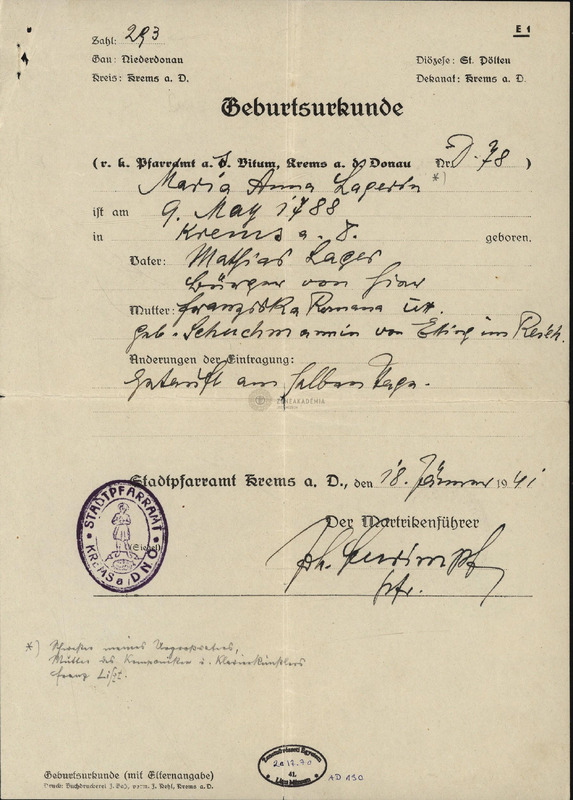 E 1
Zahl: 293
Gau: Niederdonau
Diözese: St. Pölten
Kreis: Krems a. D.
Dekanat: Krems a. D.
Geburtsurkunde
(r. k. Pfarramt a. S. Vitum, Krems a. d. Donau Nr. D. 78 )
Maria Anna Lagerin *)
ist am 9. May 1788
in Krems a. D. geboren.
Vater: Mathias Lager
Bürger von hier
Mutter: Franziska Romana ux.
geb. Schuchmannin von im Reich.
Änderungen der Eintragung:
Getauft am selben Tage.
ZENEAKADÉMIA
Stadtpfarramt Krems a. D., den 18. Jänner 1941
Der Martrikenführer
STADTPFARRAMT
KREMS a/DNO
(Siegel)
Pfr.
*) Schwester meines Urgroßvaters,
Mutter des Komponisten u. Klavierkünstlers
Franz Liszt.
Geburtsurkunde (mit Elternangabe)
Druck: Buchdruckerei J. Faber, vorm. J. Kohl, Krems a. D.
41.
AD 150